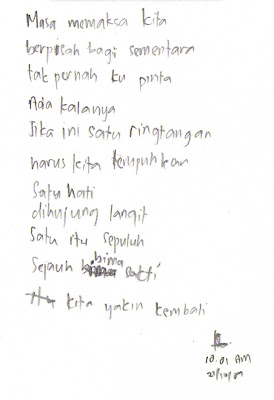 Masa memaksa kita
berpisah bagi sementara
tak pernah ku pinta
Ada kalanya
Jika ini satu ringtangan
harus kita tempuhkan
Satu hati
dihujung langit
Satu itu sepuluh
Sejauh bima sakti
kita yakin kembali
10.01 AM